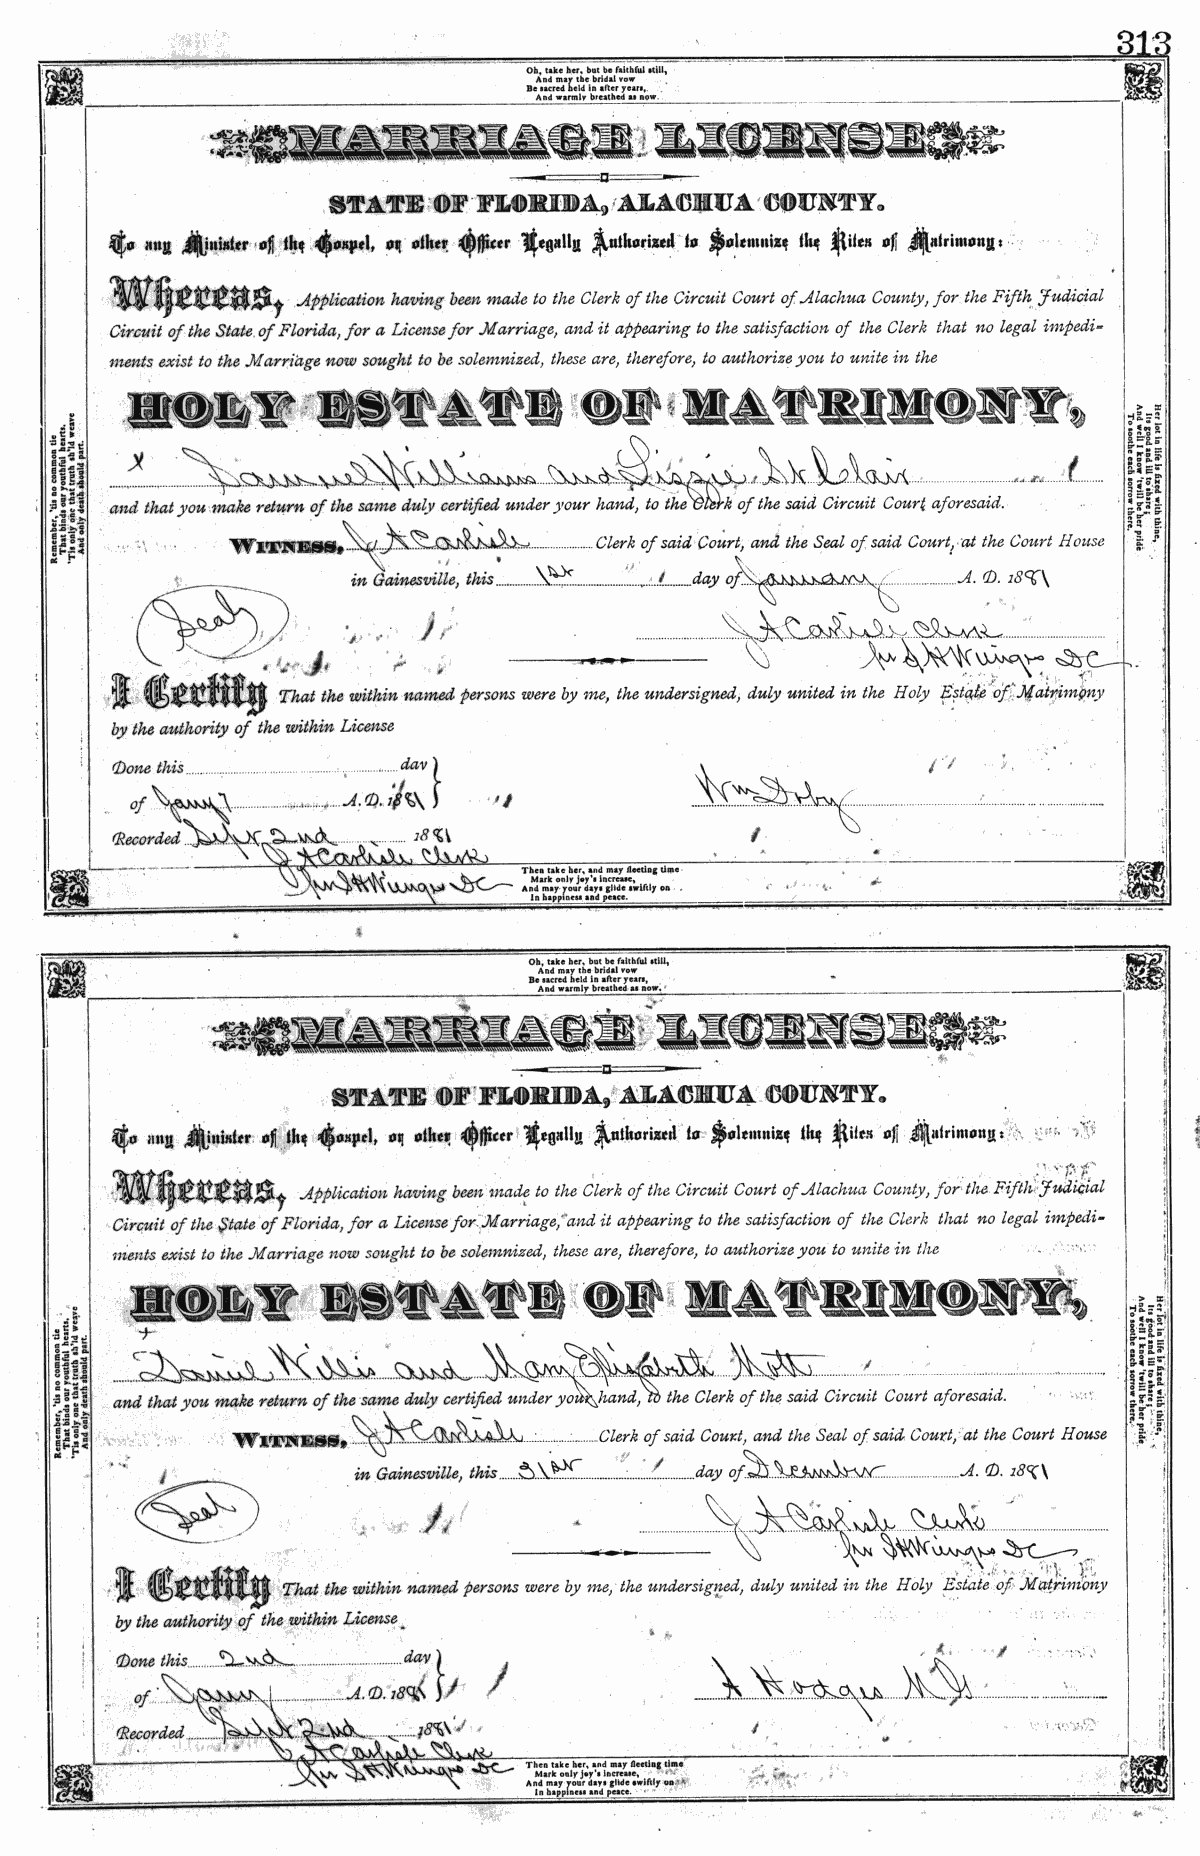 313
Oh, take her, but be faithful still,
And may the bridal vow
Be sacred held in after years,
And warmly breathed as now.
MARRIAGE LICENSE
STATE OF FLORIDA, ALACHUA COUNTY.
To any Minister of the Gospel, or other Officer Legally Authorized to Solemnize the Rites of Matrimony:
Whereas, Application having been made to the Clerk of the Circuit Court of Alachua County, for the Fifth Judicial
Circuit of the State of Florida, for a License for Marriage, and it appearing to the satisfaction of the Clerk that no legal impedi-
ments exist to the Marriage now sought to be solemnized, these are, therefore, to authorize you to unite in the
HOLY ESTATE OF MATRIMONY,
x Samuel Williams and Lizzie St Clair
and that you make return of the same duly certified under your hand, to the Clerk of the said Circuit Court aforesaid.
WITNESS, J A Carlisle Clerk of said Court, and the Seal of said Court, at the Court House
in Gainesville, this 1st day of January A. D. 1881
Seal
J A Carlisle Clerk
per S H Wienges DC
I Certify That the within named persons were by me, the undersigned, duly united in the Holy Estate of Matrimony
by the authority of the within License
Done this day
of Jany 7 A. D. 1881
Wm Doby
Recorded Sept 2nd 1881
J A Carlisle Clerk
per S H Wienges DC
Then take her, and may fleeting time
Mark only joy's increase,
And may your days glide swiftly on
In happiness and peace.
Remember, 'tis no common tie
That binds our youthful hearts,
'Tis only one that truth sh'ld weave
And only death should part.
Her lot in life is fixed with thine,
Its good and ill to share;
And well I know 'twill be her pride
To soothe each sorrow there.
Oh, take her, but be faithful still,
And may the bridal vow
Be sacred held in after years,
And warmly breathed as now.
MARRIAGE LICENSE
STATE OF FLORIDA, ALACHUA COUNTY.
To any Minister of the Gospel, or other Officer Legally Authorized to Solemnize the Rites of Matrimony:
Whereas, Application having been made to the Clerk of the Circuit Court of Alachua County, for the Fifth Judicial
Circuit of the State of Florida, for a License for Marriage, and it appearing to the satisfaction of the Clerk that no legal impedi-
ments exist to the Marriage now sought to be solemnized, these are, therefore, to authorize you to unite in the
HOLY ESTATE OF MATRIMONY,
x
Daniel Willis and Mary Elizabeth Mott
and that you make return of the same duly certified under your hand, to the Clerk of the said Circuit Court aforesaid.
WITNESS, J A Carlisle Clerk of said Court, and the Seal of said Court, at the Court House
in Gainesville, this 31st day of December A. D. 1881
Seal
J A Carlisle Clerk
per S H Wienges DC
I Certify That the within named persons were by me, the undersigned, duly united in the Holy Estate of Matrimony
by the authority of the within License
Done this 2nd day
of Jany A. D. 1881
A Hodges M G
Recorded Sept 2nd 1881
J A Carlisle Clerk
per S H Wienges DC
Then take her, and may fleeting time
Mark only joy's increase,
And may your days glide swiftly on
In happiness and peace.
Remember, 'tis no common tie
That binds our youthful hearts,
'Tis only one that truth sh'ld weave
And only death should part.
Her lot in life is fixed with thine,
Its good and ill to share;
And well I know 'twill be her pride
To soothe each sorrow there.